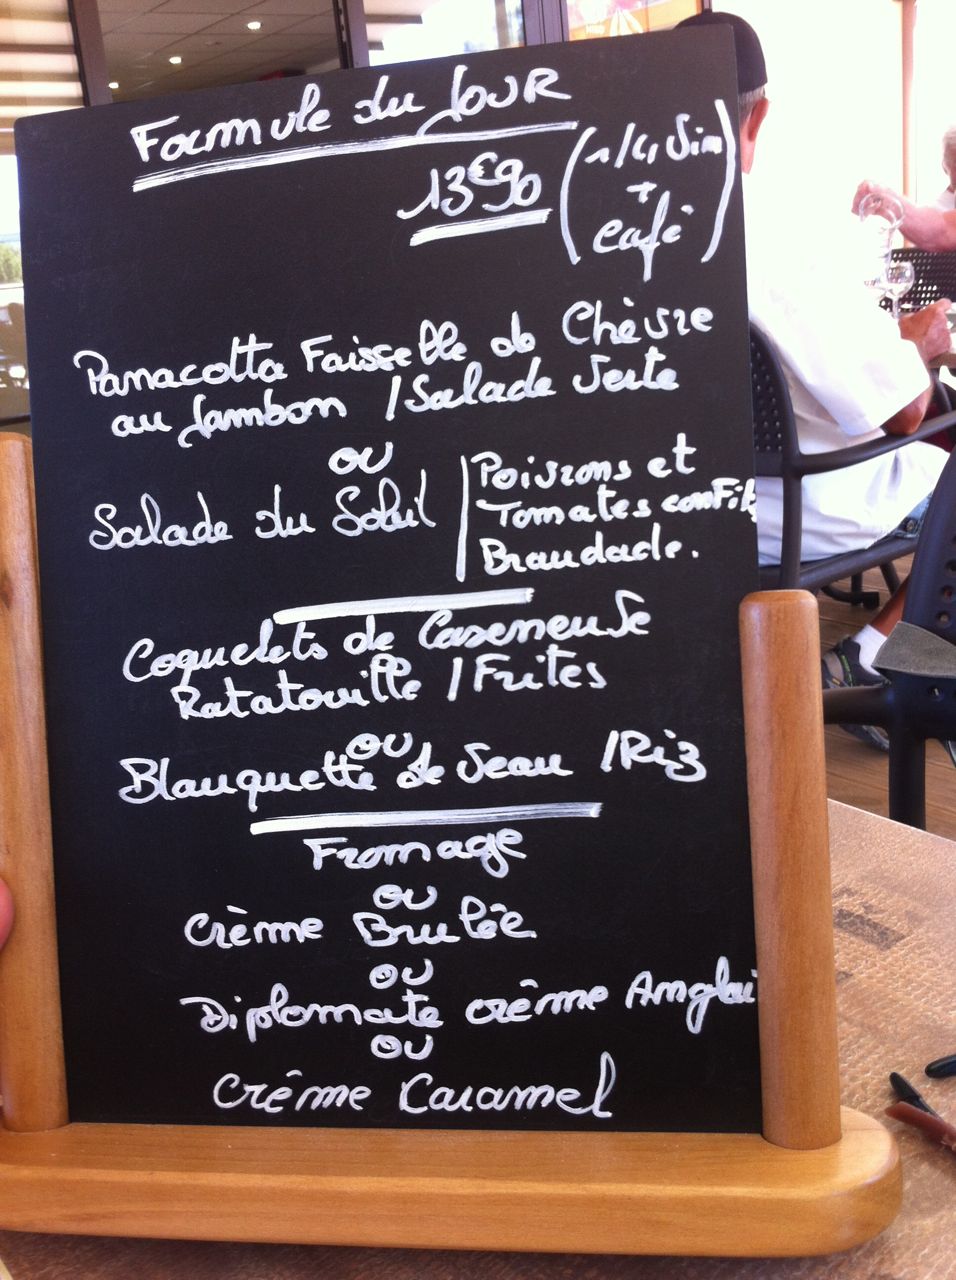 Formule du Jour
13€90 (1/4 Vin
+
Café)
Panacotta Faisselle de Chèvre
au Jambon / Salade Verte
ou
Salade du Soleil | Poivrons et
Tomates confits
Brandade.
Coquelets de Caseneuve
Ratatouille / Frites
ou
Blanquette de Veau / Riz
Fromage
ou
Crème Brulée
ou
Diplomate crème Anglai
ou
Crème Caramel